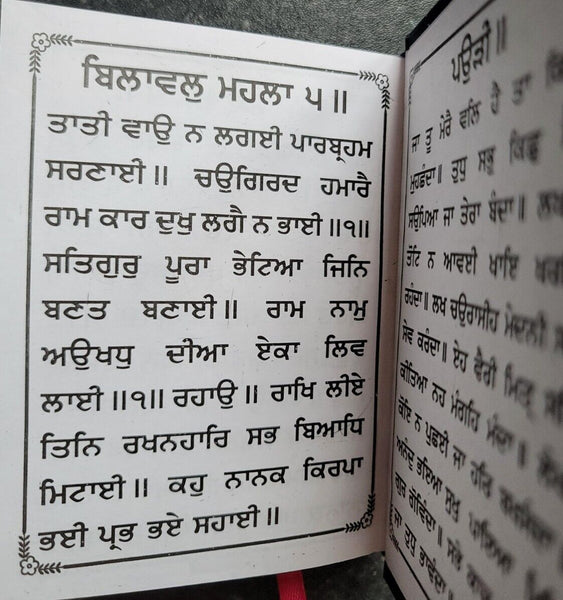 ਬਿਲਾਵਲੁ ਮਹਲਾ ੫ ॥
ਤਾਤੀ ਵਾਉ ਨ ਲਗਈ ਪਾਰਬ੍ਰਹਮ
ਸਰਣਾਈ॥ ਚਉਗਿਰਦ ਹਮਾਰੈ
ਰਾਮ ਕਾਰ ਦੁਖੁ ਲਗੈ ਨ ਭਾਈ॥੧॥
ਸਤਿਗੁਰੁ ਪੂਰਾ ਭੇਟਿਆ ਜਿਨਿ
ਬਣਤ ਬਣਾਈ॥ ਰਾਮ ਨਾਮੁ
ਅਉਖਧੁ ਦੀਆ ਏਕਾ ਲਿਵ
ਲਾਈ॥੧॥ ਰਹਾਉ॥ ਰਾਖਿ ਲੀਏ
ਤਿਨਿ ਰਖਨਹਾਰਿ ਸਭ ਬਿਆਧਿ
ਮਿਟਾਈ॥ ਕਹੁ ਨਾਨਕ ਕਿਰਪਾ
ਭਈ ਪ੍ਰਭ ਭਏ ਸਹਾਈ॥
ਪਉੜੀ॥
ਜਾ ਤੂ ਮੇਰੈ ਵਲਿ ਹੈ ਤਾ
ਮੁਹਛੰਦਾ॥ ਤੁਧੁ ਸਭੁ ਕਿਛੁ
ਸਉਪਿਆ ਜਾ ਤੇਰਾ ਬੰਦਾ॥
ਤੋਟਿ ਨ ਆਵਈ ਖਾਇ
ਰਹੰਦਾ॥ ਲਖ ਚਉਰਾਸੀਹ ਮੇਦਨੀ
ਸੇਵ ਕਰੰਦਾ॥ ਏਹ ਵੈਰੀ ਮਿਤ੍ਰ
ਕੀਤਿਆ ਨਹ ਮੰਗਹਿ ਮੰਦਾ॥
ਕੋਇ ਨ ਪੁਛਈ ਜਾ ਹਰਿ
ਅਨੰਦੁ ਭਇਆ ਸੁਖੁ ਪਾਇਆ
ਗੁਰ ਗੋਵਿੰਦਾ॥ ਸਭੇ
ਜਾ ਤੁਧੁ ਭਾਵੰਦਾ॥